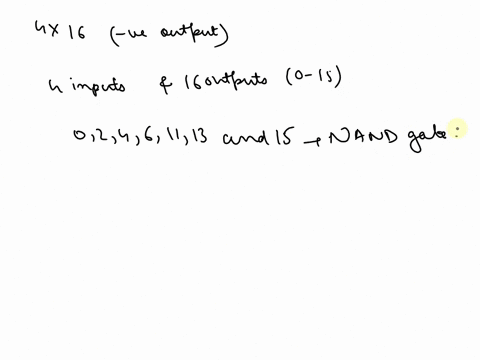 4 x 16 (-ve output)
4 inputs & 16 outputs (0-15)
0, 2, 4, 6, 11, 13 and 15 → NAND gate :